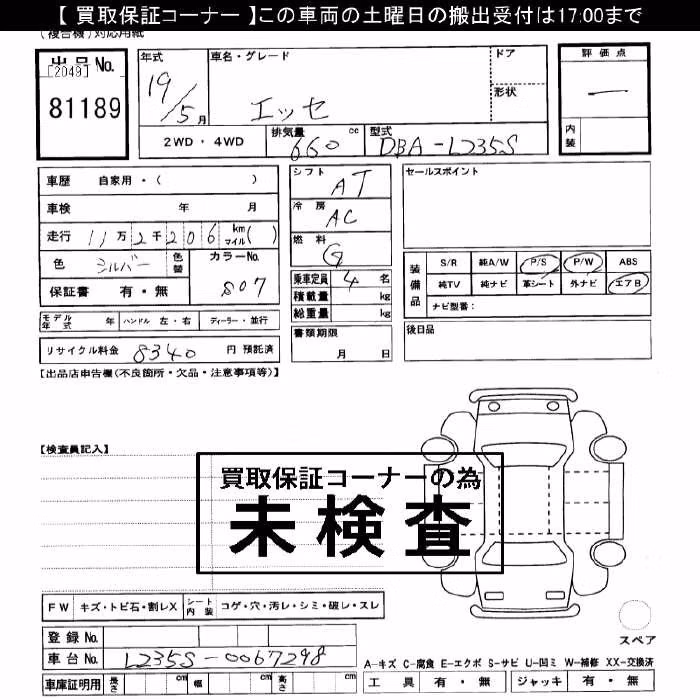 【 買取保証コーナー 】この車両の土曜日の搬出受付は17:00まで
(複合機)対応用紙
出品No. [2049] 81189
年式 19/5月
車名・グレード エッセ
ドア
形状
評価点 ー
内装
2WD・4WD
排気量 660 cc
型式 DBA-L235S
車歴 自家用・( )
車検 年 月
走行 11万2千206 km マイル( )
色 シルバー 色替 カラーNo. S07
保証書 有・無
シフト AT
冷房 AC
燃料 G
乗車定員 4 名
積載量 kg
総重量 kg
セールスポイント
装備品 S/R 純A/W P/S P/W ABS
純TV 純ナビ 革シート 外ナビ エアB
ナビ型番:
モデル年式 年 ハンドル 左・右 ディーラー・並行
書類期限 月 日
後日品
リサイクル料金 8340 円 預託済
【出品店申告欄(不良箇所・欠品・注意事項等)】
【検査員記入】
買取保証コーナーの為
未検査
FW キズ・トビ石・割レX シート内装 コゲ・穴・汚レ・シミ・破レ・スレ
スペア
登録No.
車台No. L235S-0067298
A-キズ C-腐食 E-エクボ S-サビ U-凹ミ W-補修 XX-交換済
車庫証明用 長さ cm 幅 cm 高さ cm
工具 有・無 ジャッキ 有・無